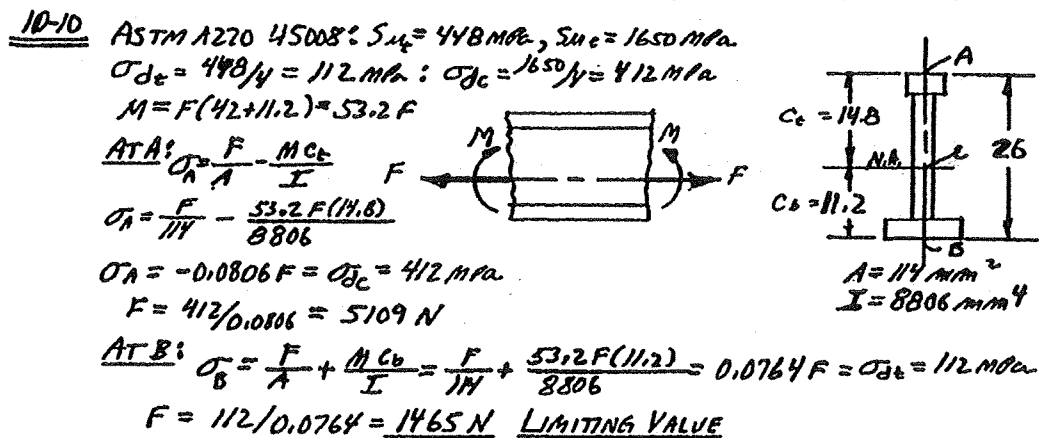 10-10 ASTM A220 45008: Sut = 448 MPa, Suc = 1650 MPa
σdt = 448/4 = 112 MPa : σdc = 1650/4 = 412 MPa
M = F(42+11.2) = 53.2 F
AT A: σA = F/A - MCt/I
σA = F/114 - 53.2F(14.8)/8806
σA = -0.0806F = σdc = 412 MPa
F = 412/0.0806 = 5109 N
AT B: σB = F/A + MCb/I = F/114 + 53.2F(11.2)/8806 = 0.0764F = σdt = 112 MPa
F = 112/0.0764 = 1465 N LIMITING VALUE
F M M F
A
Ct = 14.8
N.A.
26
Cb = 11.2
B
A = 114 mm²
I = 8806 mm⁴